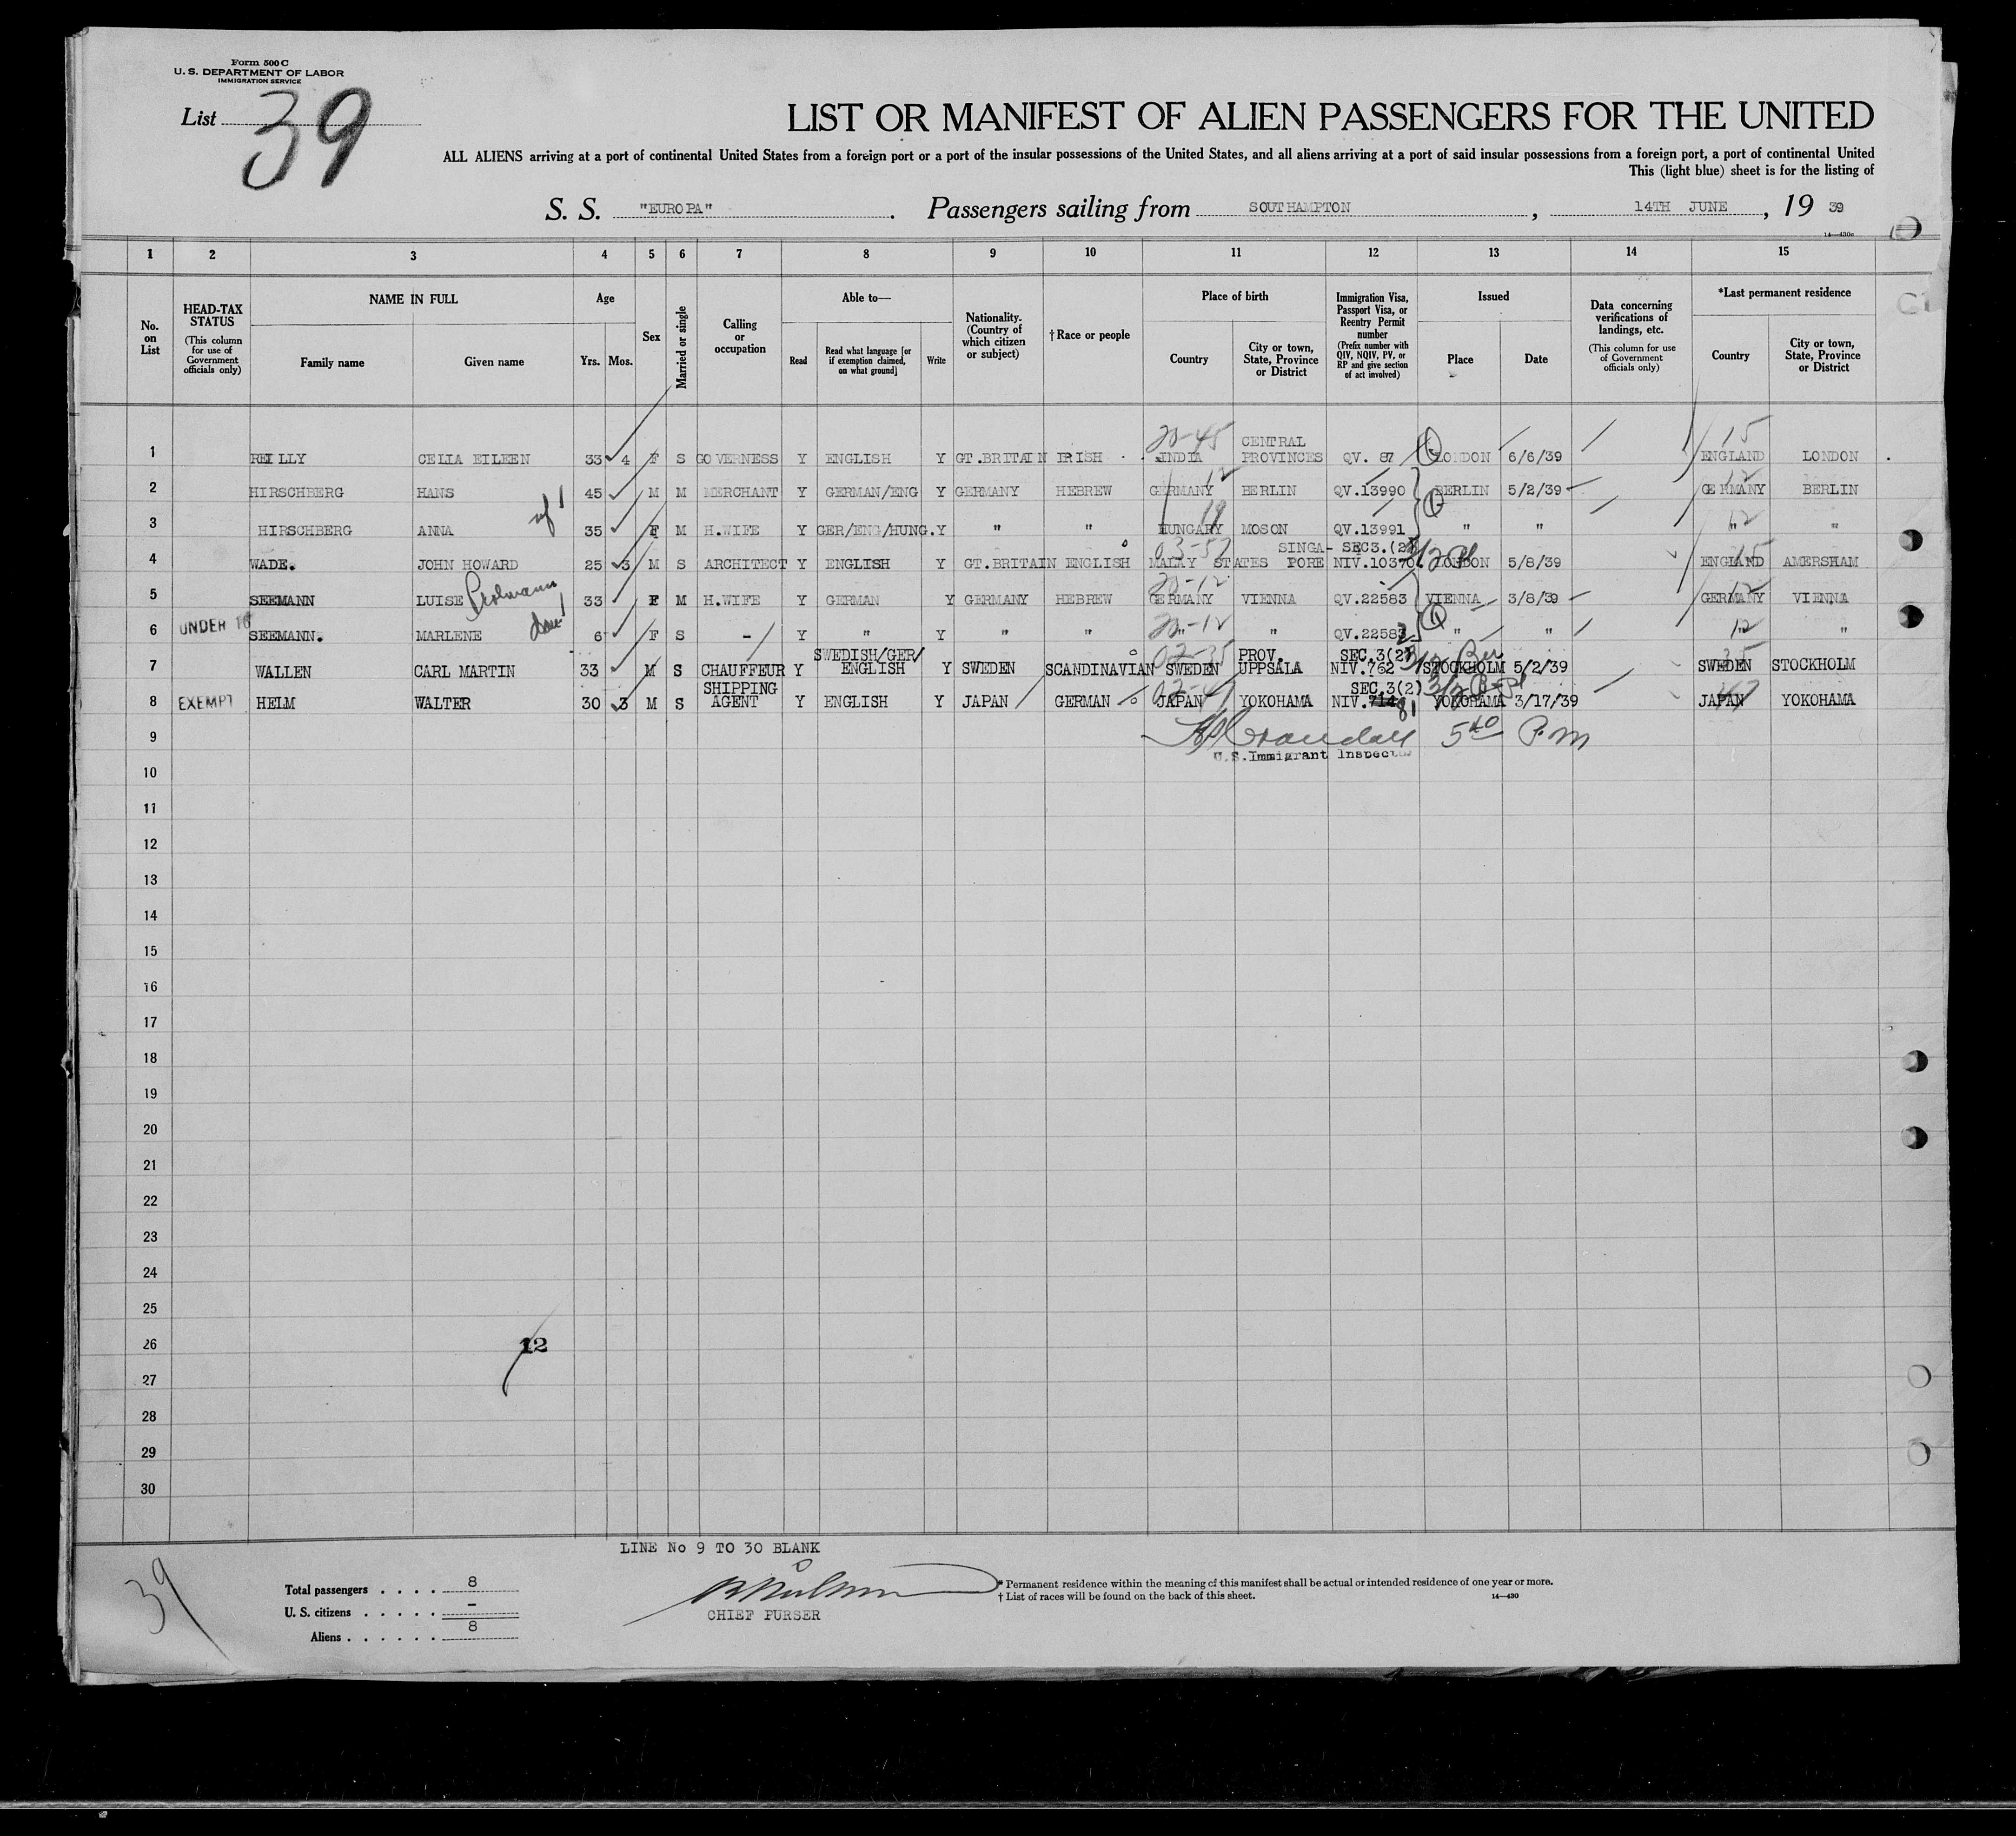 Form 500 C
U. S. DEPARTMENT OF LABOR
IMMIGRATION SERVICE
List 39
LIST OR MANIFEST OF ALIEN PASSENGERS FOR THE UNITED
ALL ALIENS arriving at a port of continental United States from a foreign port or a port of the insular possessions of the United States, and all aliens arriving at a port of said insular possessions from a foreign port, a port of continental United
This (light blue) sheet is for the listing of
S. S. "EUROPA". Passengers sailing from SOUTHAMPTON, 14TH JUNE, 19 39
14—430a
1 2 3 4 5 6 7 8 9 10 11 12 13 14 15
No. on List
HEAD-TAX STATUS (This column for use of Government officials only)
NAME IN FULL
Family name Given name
Age
Yrs. Mos.
Sex
Married or single
Calling or occupation
Able to—
Read Read what language [or if exemption claimed, on what ground] Write
Nationality. (Country of which citizen or subject)
†Race or people
Place of birth
Country City or town, State, Province or District
Immigration Visa, Passport Visa, or Reentry Permit number (Prefix number with QIV, NQIV, PV, or RP and give section of act involved)
Issued
Place Date
Data concerning verifications of landings, etc. (This column for use of Government officials only)
*Last permanent residence
Country City or town, State, Province or District
20-45 CENTRAL 15
1 REILLY CELIA EILEEN 33 4 F S GOVERNESS Y ENGLISH Y GT.BRITAIN IRISH INDIA PROVINCES QV. 87 LONDON 6/6/39 ENGLAND LONDON
2 HIRSCHBERG HANS 45 M M MERCHANT Y GERMAN/ENG Y GERMANY HEBREW GERMANY 12 BERLIN QV.13990 BERLIN 5/2/39 GERMANY 12 BERLIN
3 HIRSCHBERG ANNA wf 35 F M H.WIFE Y GER/ENG/HUNG. Y " " HUNGARY 19 MOSON QV.13991 " " " 12 "
03-57 SINGA- SEC3.(2)
4 WADE. JOHN HOWARD 25 3 M S ARCHITECT Y ENGLISH Y GT.BRITAIN ENGLISH MALAY STATES PORE NIV.10370 LONDON 5/8/39 ENGLAND 15 AMERSHAM
20-12
5 SEEMANN LUISE 33 F M H.WIFE Y GERMAN Y GERMANY HEBREW GERMANY VIENNA QV.22583 VIENNA 3/8/39 GERMANY 12 VIENNA
6 UNDER 16 SEEMANN. MARLENE dau 6 F S - Y " Y " " " 20-12 " QV.22583 " " " 12 "
SWEDISH/GER/ 02-35 PROV. SEC.3(2)
7 WALLEN CARL MARTIN 33 M S CHAUFFEUR Y ENGLISH Y SWEDEN SCANDINAVIAN SWEDEN UPPSALA NIV.762 STOCKHOLM 5/2/39 SWEDEN 35 STOCKHOLM
SHIPPING 02-47 SEC.3(2)
8 EXEMPT HELM WALTER 30 3 M S AGENT Y ENGLISH Y JAPAN GERMAN JAPAN YOKOHAMA NIV.714 81 YOKOHAMA 3/17/39 JAPAN 47 YOKOHAMA
9 Crandall 5 40 P.m
U.S. Immigrant Inspector
10
11
12
13
14
15
16
17
18
19
20
21
22
23
24
25
26 12
27
28
29
30
LINE No 9 TO 30 BLANK
39
Total passengers . . . . 8
U. S. citizens . . . . . -
Aliens . . . . . . 8
CHIEF PURSER
* Permanent residence within the meaning of this manifest shall be actual or intended residence of one year or more.
† List of races will be found on the back of this sheet.
14—430